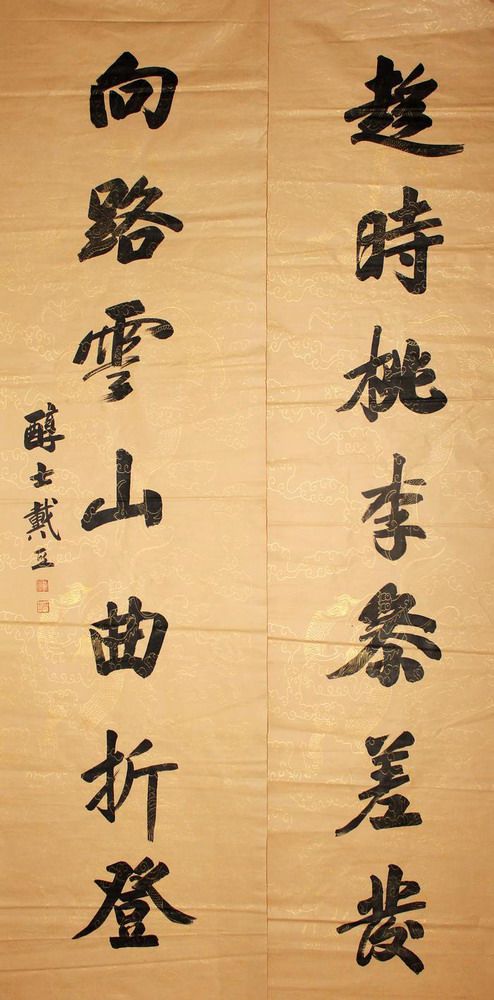 趁時桃李參差發
向路雲山曲折登
醇士戴